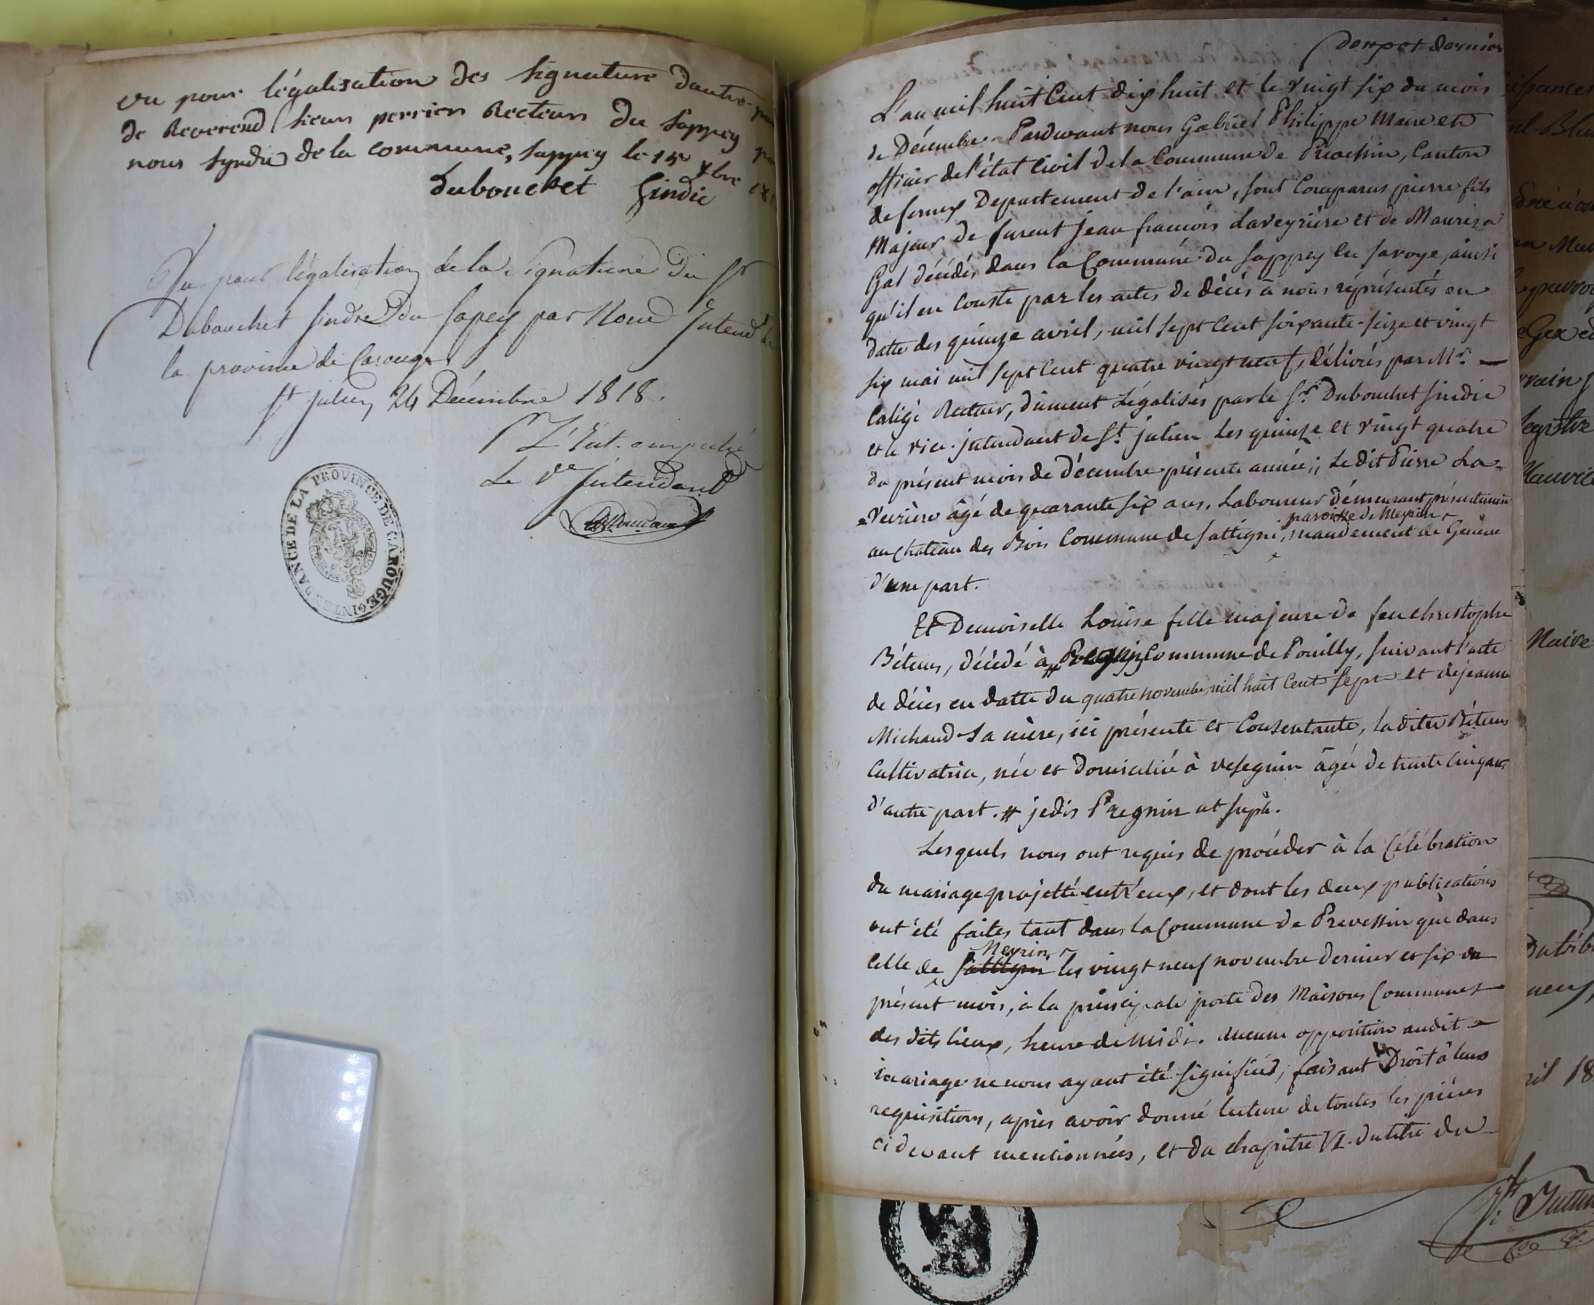 vu pour légalisation des signature d'autre
de Reverend Sieur perrier Recteur du Sappey
nous syndic de la commune, Sappey le 15 xbre
duboucket Sindic
Vu pour légalisation de la signature du Sr
Dubouchet sindic du Sapey par Nous Intend
la province de Carouge
St julien 24 Décembre 1818.
Le Ve Intendant
INTENDANCE DE LA PROVINCE DE CAROUGE
dernier
L'an mil huit Cent dix huit et le vingt six du mois
de Décembre Pardevant nous Gabriel Philippe Maire et
officier de l'état Civil de la Commune de Prevessin, Canton
de ferney Departement de l'ain, sont Comparus pierre fils
Majeur de furent jean francois Laveyriere et de Mauriza
Gal décédés dans la Commune du Sappey en Savoye, ainsi
qu'il en Conste par les actes de décès à nous réprésentés en
datte des quinze avril, mil sept Cent soixante-seize et vingt
six mai mil sept Cent quatre vingt neuf, délivrés par Mr.
Caligé Recteur, dûment Légalisés par le Sr. Dubouchet Sindic
et le vice-intendant de St. julien les quinze et vingt quatre
du présent mois de décembre présente année; Le dit Pierre La=
=veirière âgé de quarante six ans, Laboureur démeurant présentement
paroisse de Meyrin
au chateau des Bois Commune de Sattigni, mandement de Genève
d'une part.
Et Demoiselle Louise fille majeure de feu christophe
Béteus, décédé à Commune de Pouilly, suivant l'acte
de décès en datte du quatre novembre mil huit Cent sept et de jeanne
Michaud sa mère, ici présente et Consentante, la dite Béteus
Cultivatrice, née et domiciliée à vesegnin âgée de trente Cinq ans
d'autre part. # je dis Pregnin ut suprà.
Lesquels nous ont requis de procéder à la Célébration
du mariage projetté entr'eux, et dont les deux publications
ont été faites tant dans la Commune de Prevessin que dans
Meyrin
celle de Sattigni les vingt neuf novembre dernier et six du
présent mois, à la principale porte des Maisons Communes
des dits lieux, heure de Midi. Aucune opposition audit
mariage ne nous ayant été signifiée; faisant Droit à leur
requisitions, après avoir donné lecture de toutes les pièces
ci devant mentionnées, et du chapitre VI du titre du